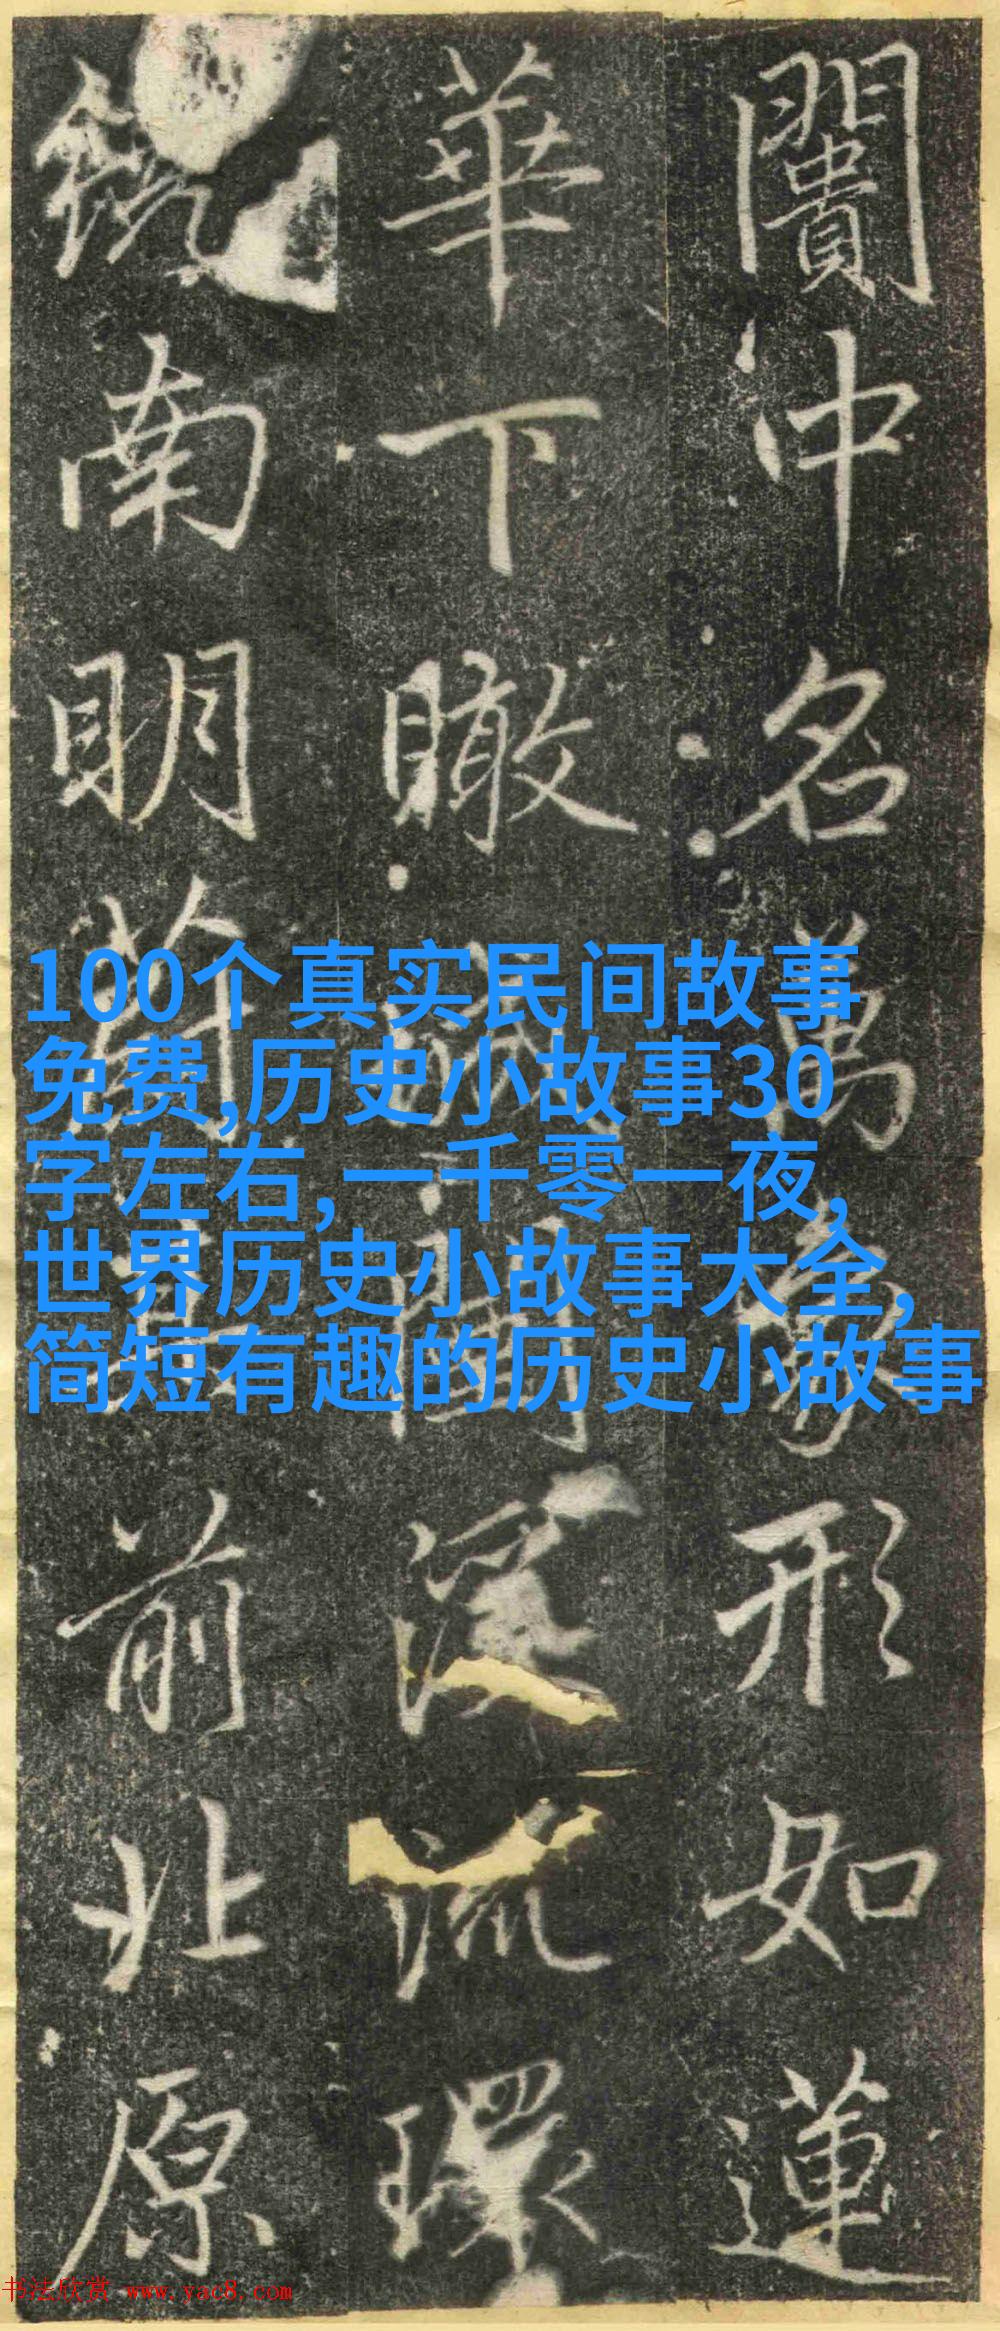 闠中名萬象形如蓮
華下瞰流環
南明前北原
100个真实民间故事
免费,历史小故事30
字左右,一千零一夜,
世界历史小故事大全,
简短有趣的历史小故事
书法欣赏 www.yac8.com